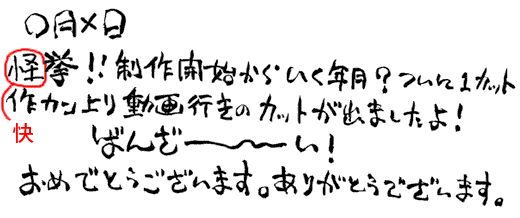 〇月×日
怪挙!!制作開始からいく年月?ついに1カット
作カン上り動画行きのカットが出ましたよ!
快
ばんざ〜〜〜い!
おめでとうございます。ありがとうでざいます。